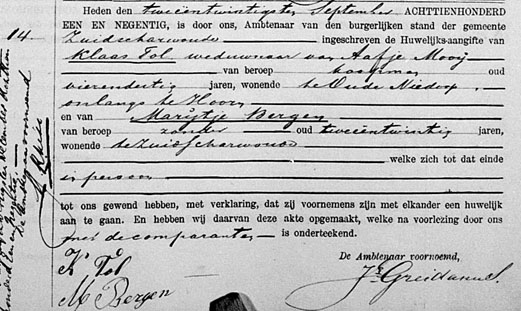 Heden den tweeëntwintigste September ACHTTIENHONDERD
EEN EN NEGENTIG, is door ons, Ambtenaar van den burgerlijken stand der gemeente
Zuidscharwoude ingeschreven de Huwelijks-aangifte van
Klaas Tol weduwnaar van Aafje Mooij
van beroep koopman oud
vierendertig jaren, wonende te Oude Niedorp,
onlangs te Hoorn
en van Marijtje Bergen
van beroep zonder oud tweeëntwintig jaren,
wonende te Zuidscharwoude
welke zich tot dat einde
in persoon
tot ons gewend hebben, met verklaring, dat zij voornemens zijn met elkander een huwelijk
aan te gaan. En hebben wij daarvan deze akte opgemaakt, welke na voorlezing door ons
met de comparanten is onderteekend.
De Ambtenaar voornoemd,
K. Tol
M Bergen
Greidanus.
14